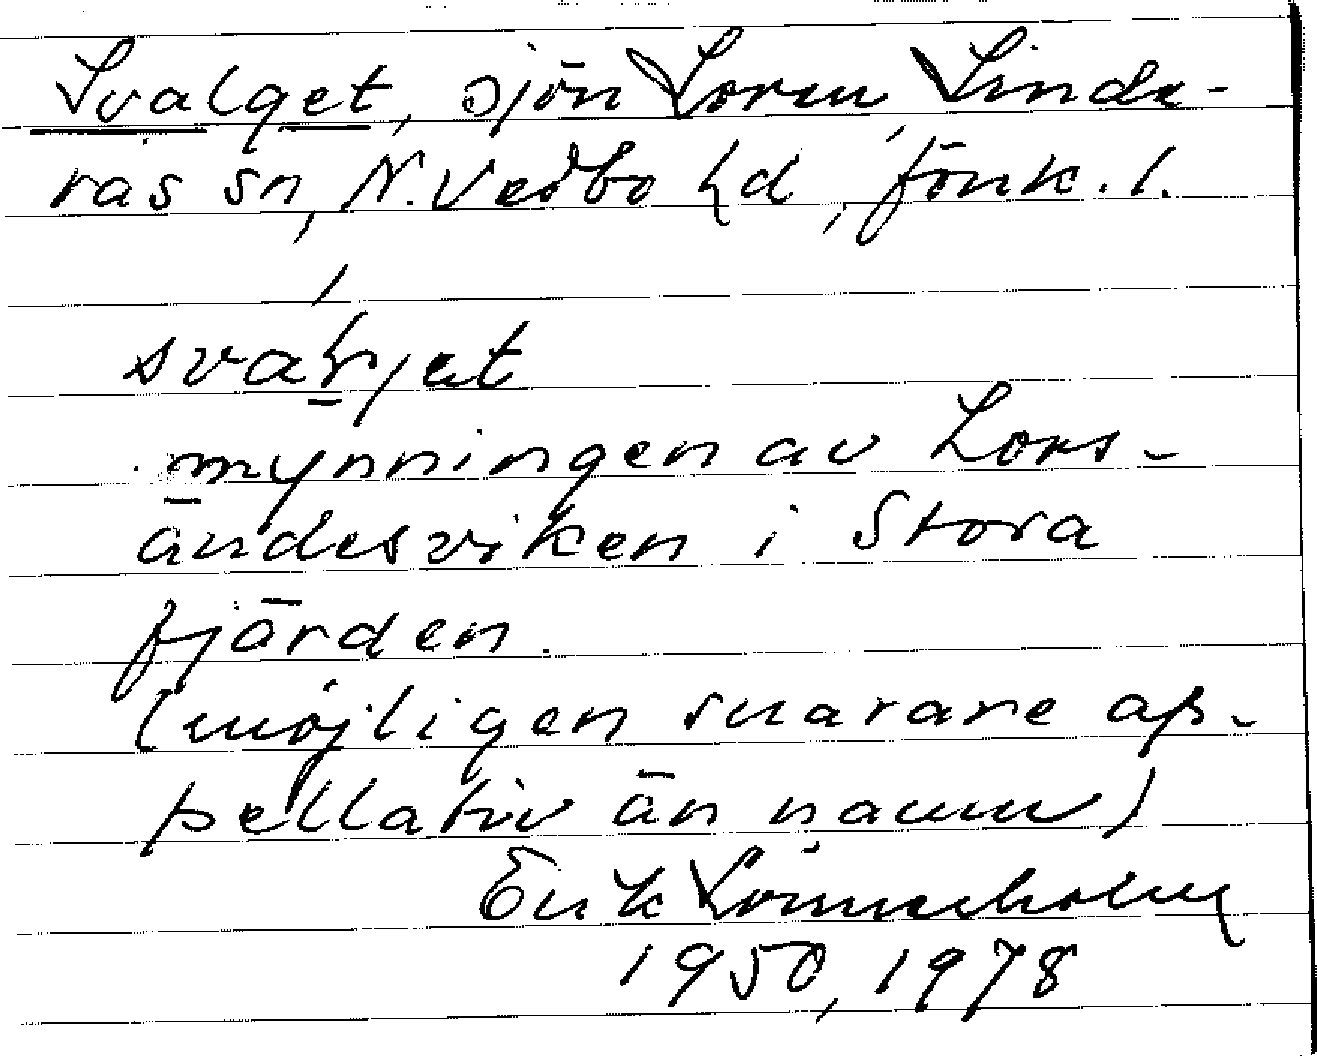 Svalget, sjön Loren, Linde-
rås sn, N. Vedbo hd, Jönk. l.
svaḷjet
mynningen av Lors-
ändesviken i Stora
fjärden.
(möjligen snarare ap-
pellativ än namn)
Erik Lönnerholm
1950, 1978